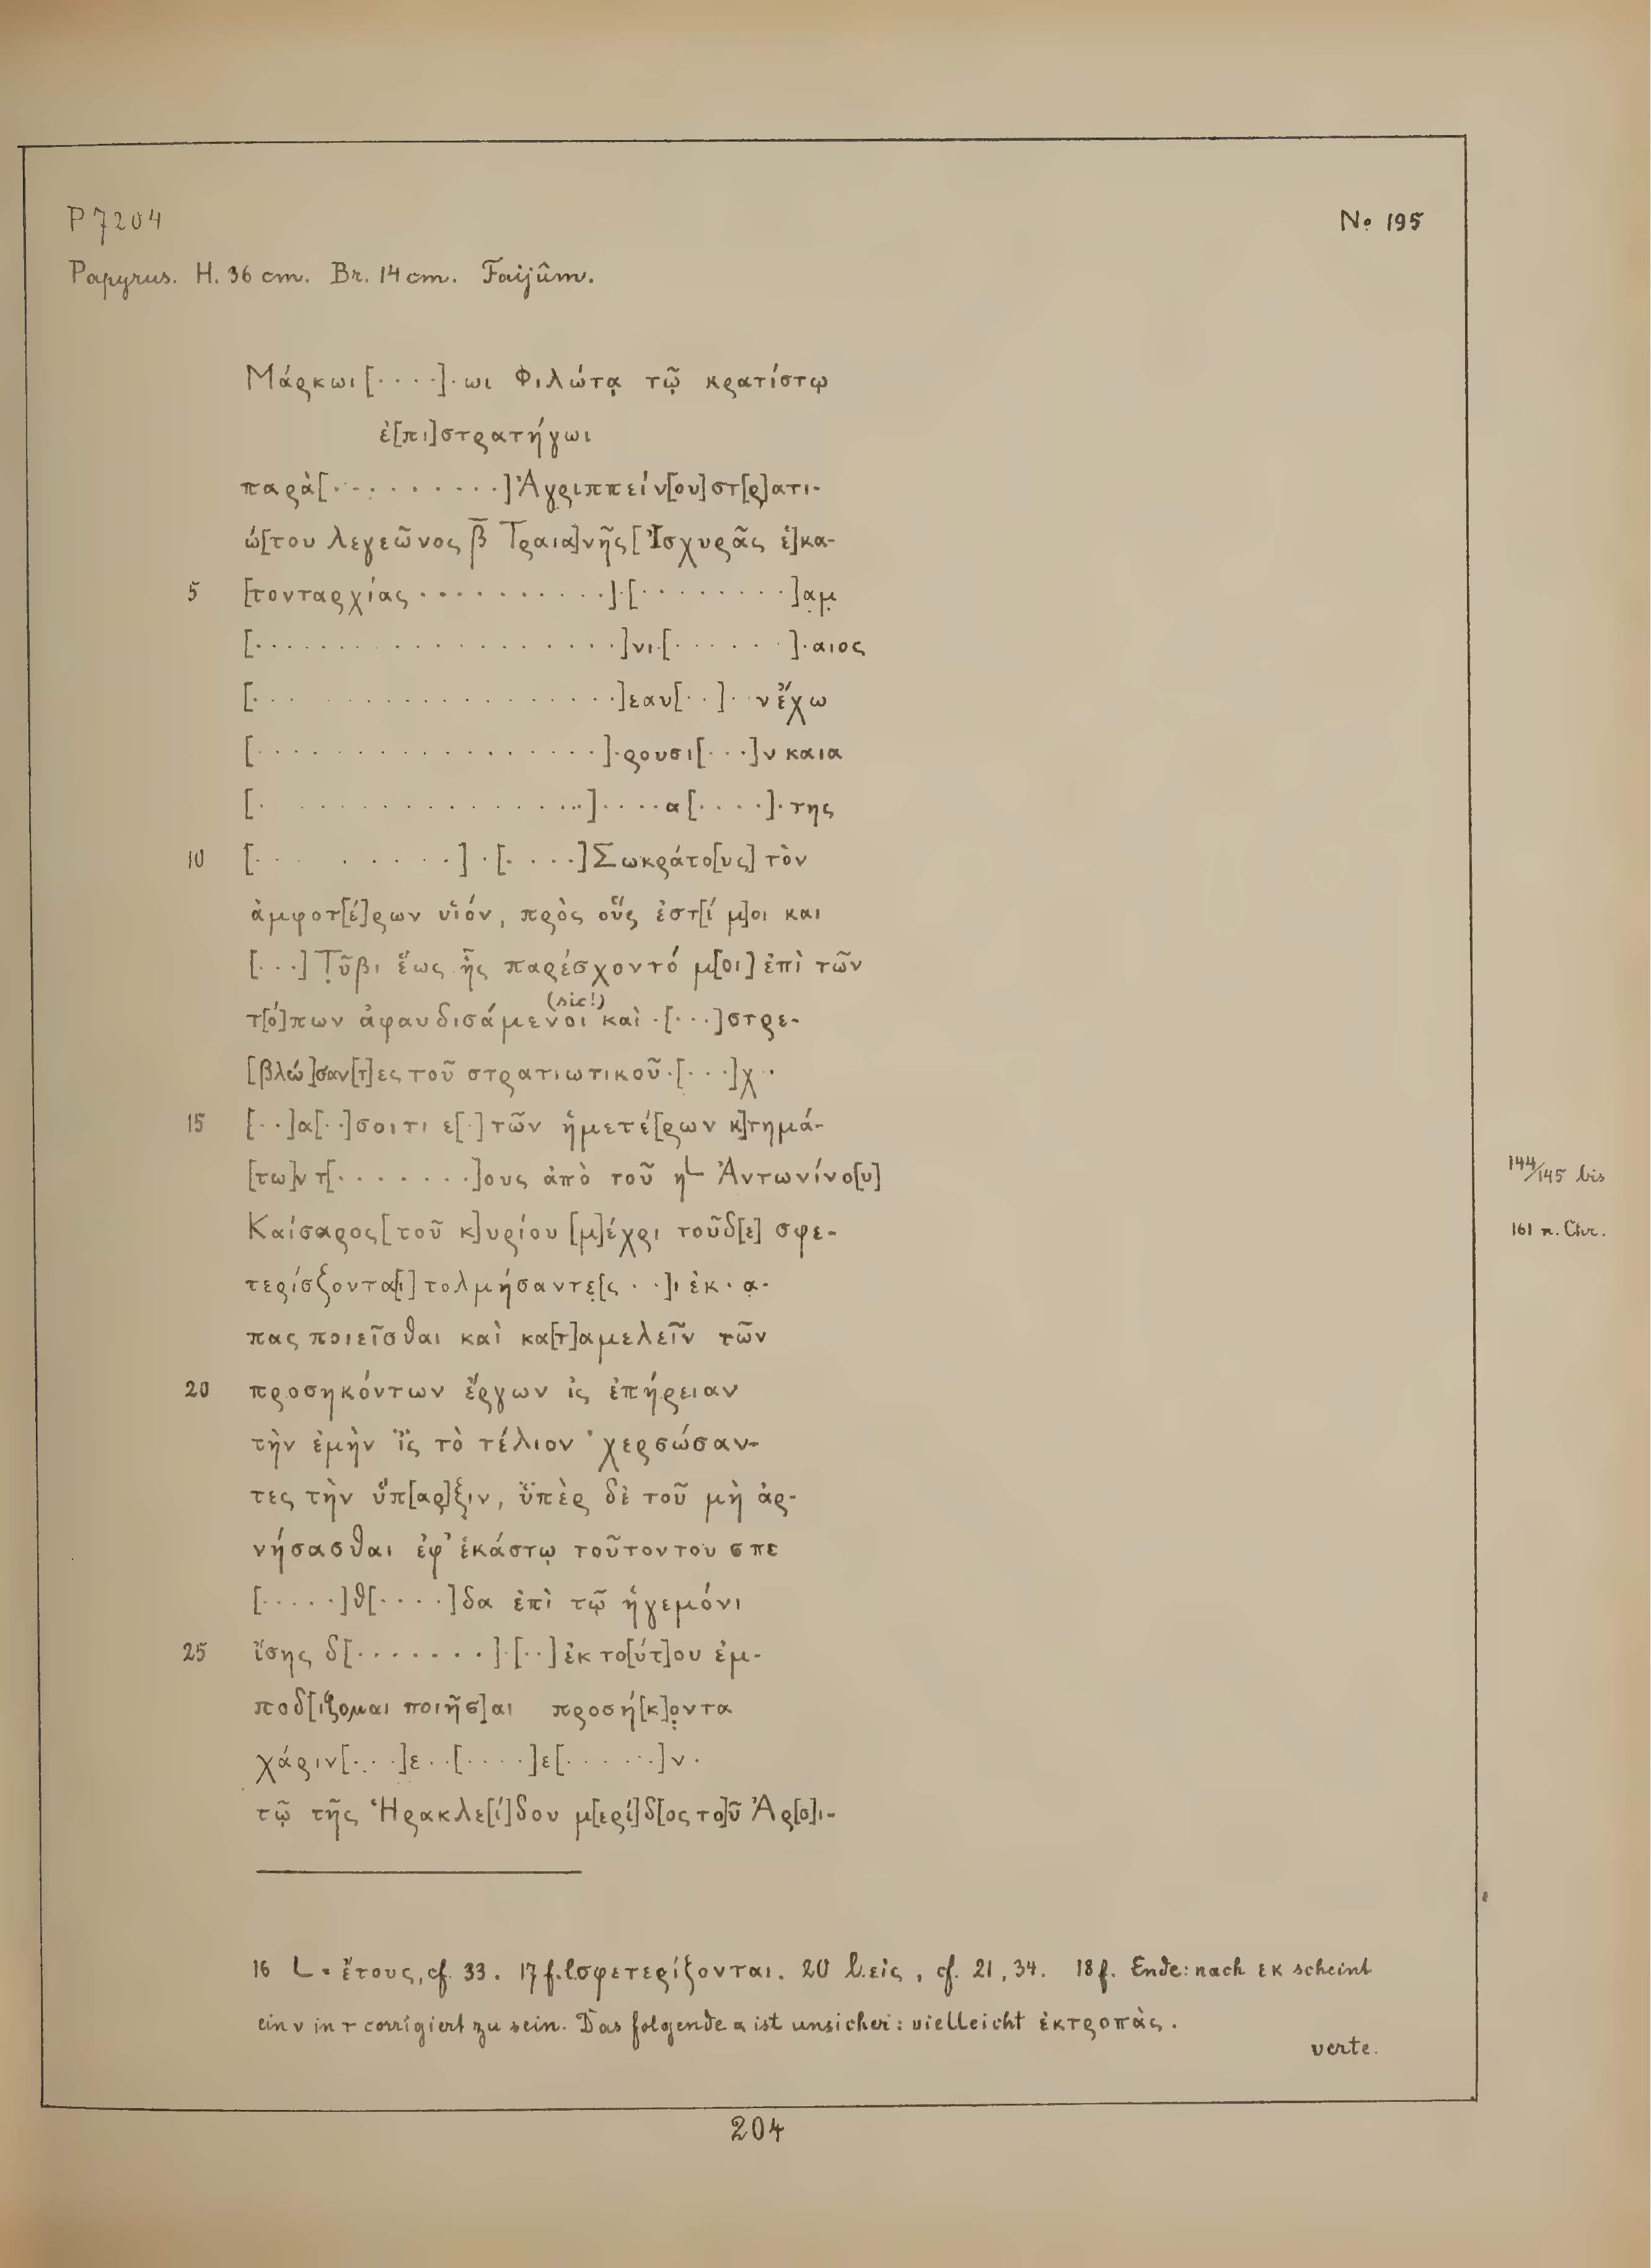 P 7204
No 195
Papyrus. H. 36 cm. Br. 14 cm. Faijûm.
Μάρκωι [· · · ·]· ωι Φιλώτᾳ τῷ κρατίστῳ
ἐ[πι]στρατήγωι
παρὰ[· · · · · · · · ·]Ἀγριππείν[ου]στ[ρ]ατι-
ώ[του λεγεῶνος β̅ Τραια]νῆς [Ἰσχυρᾶς ἑ]κα-
5 [τονταρχίας · · · · · · · · · ·]·[· · · · · · · ·]α̣μ̣
[· · · · · · · · · · · · · · · · · ·]νι·[· · · · · ·]·αιος
[· · · · · · · · · · · · · · · · ·]εαυ[· ·]· ·ν ἔχω
[· · · · · · · · · · · · · · · · ·]·ρουσι[· · ·]ν καια
[· · · · · · · · · · · · · · · ·]· · · ·α[· · · ·]·της
10 [· · · · · · · · ·]·[· · · ·]Σωκράτο[υς] τὸν
ἀμφοτ[έ]ρων υἱόν, πρὸς οὕς ἐστ[ί μ]οι και
[· · ·] Τ̣ῦβι ἕως ἧς παρέσχοντό μ[οι] ἐπὶ τῶν
(sic!)
τ[ό]πων ἀφαυδισάμενοι καὶ ·[· · ·]στρε-
[βλώ]σαν[τ]ες τοῦ στρατιωτικοῦ·[· · ·]χ ·
15 [· ·]α[· ·]σοιτι ε[·] τῶν ἡμετέ[ρων κ]τημά-
[τω]ν τ[· · · · · · ·]ους ἀπὸ τοῦ η L Ἀντωνίνο[υ]
144/145 bis
Καίσαρος [τοῦ κ]υρίου [μ]έχρι τοῦδ[ε] σφε-
161 n. Chr.
τερίσζοντα[ι] τολμήσαντε̣[ς · ·]ι ἐκ · α̣-
πας ποιεῖσθαι καὶ κα[τ]αμελεῖν τῶν
20 προσηκόντων ἔργων ἰς ἐπήρειαν
τὴν ἐμὴν ἲς τὸ τέλιον ʼχερσώσαν-
τες τὴν ὕπ[αρ]ξιν, ὑπὲρ δὲ τοῦ μὴ ἀρ-
νήσασθαι ἐφʼ ἑκάστῳ τοῦτοντου σπε
[· · · · ·]θ[· · · ·]δα ἐπὶ τῷ ἡγεμόνι
25 ἴσης δ[· · · · · · ·]·[· ·]ἐκ το[ύτ]ου ἐμ-
ποδ[ίζομαι ποιῆσ]αι προσή[κ]ο̣ντα
χάριν[· · ·]ε· ·[· · · ·]ε[· · · · · ·]ν ·
τῷ τῆς Ἡρακλε[ί]δου μ[ερί]δ[ος το]ῦ Ἀρ[σ]ι-
16 L = ἔτους, cf. 33. 17 f. l. σφετερίζονται. 20 l. εἰς, cf. 21, 34. 18 f. Ende: nach εκ scheint
ein ν in τ corrigiert zu sein. Das folgende α ist unsicher: vielleicht ἐκτροπὰς.
verte.
204